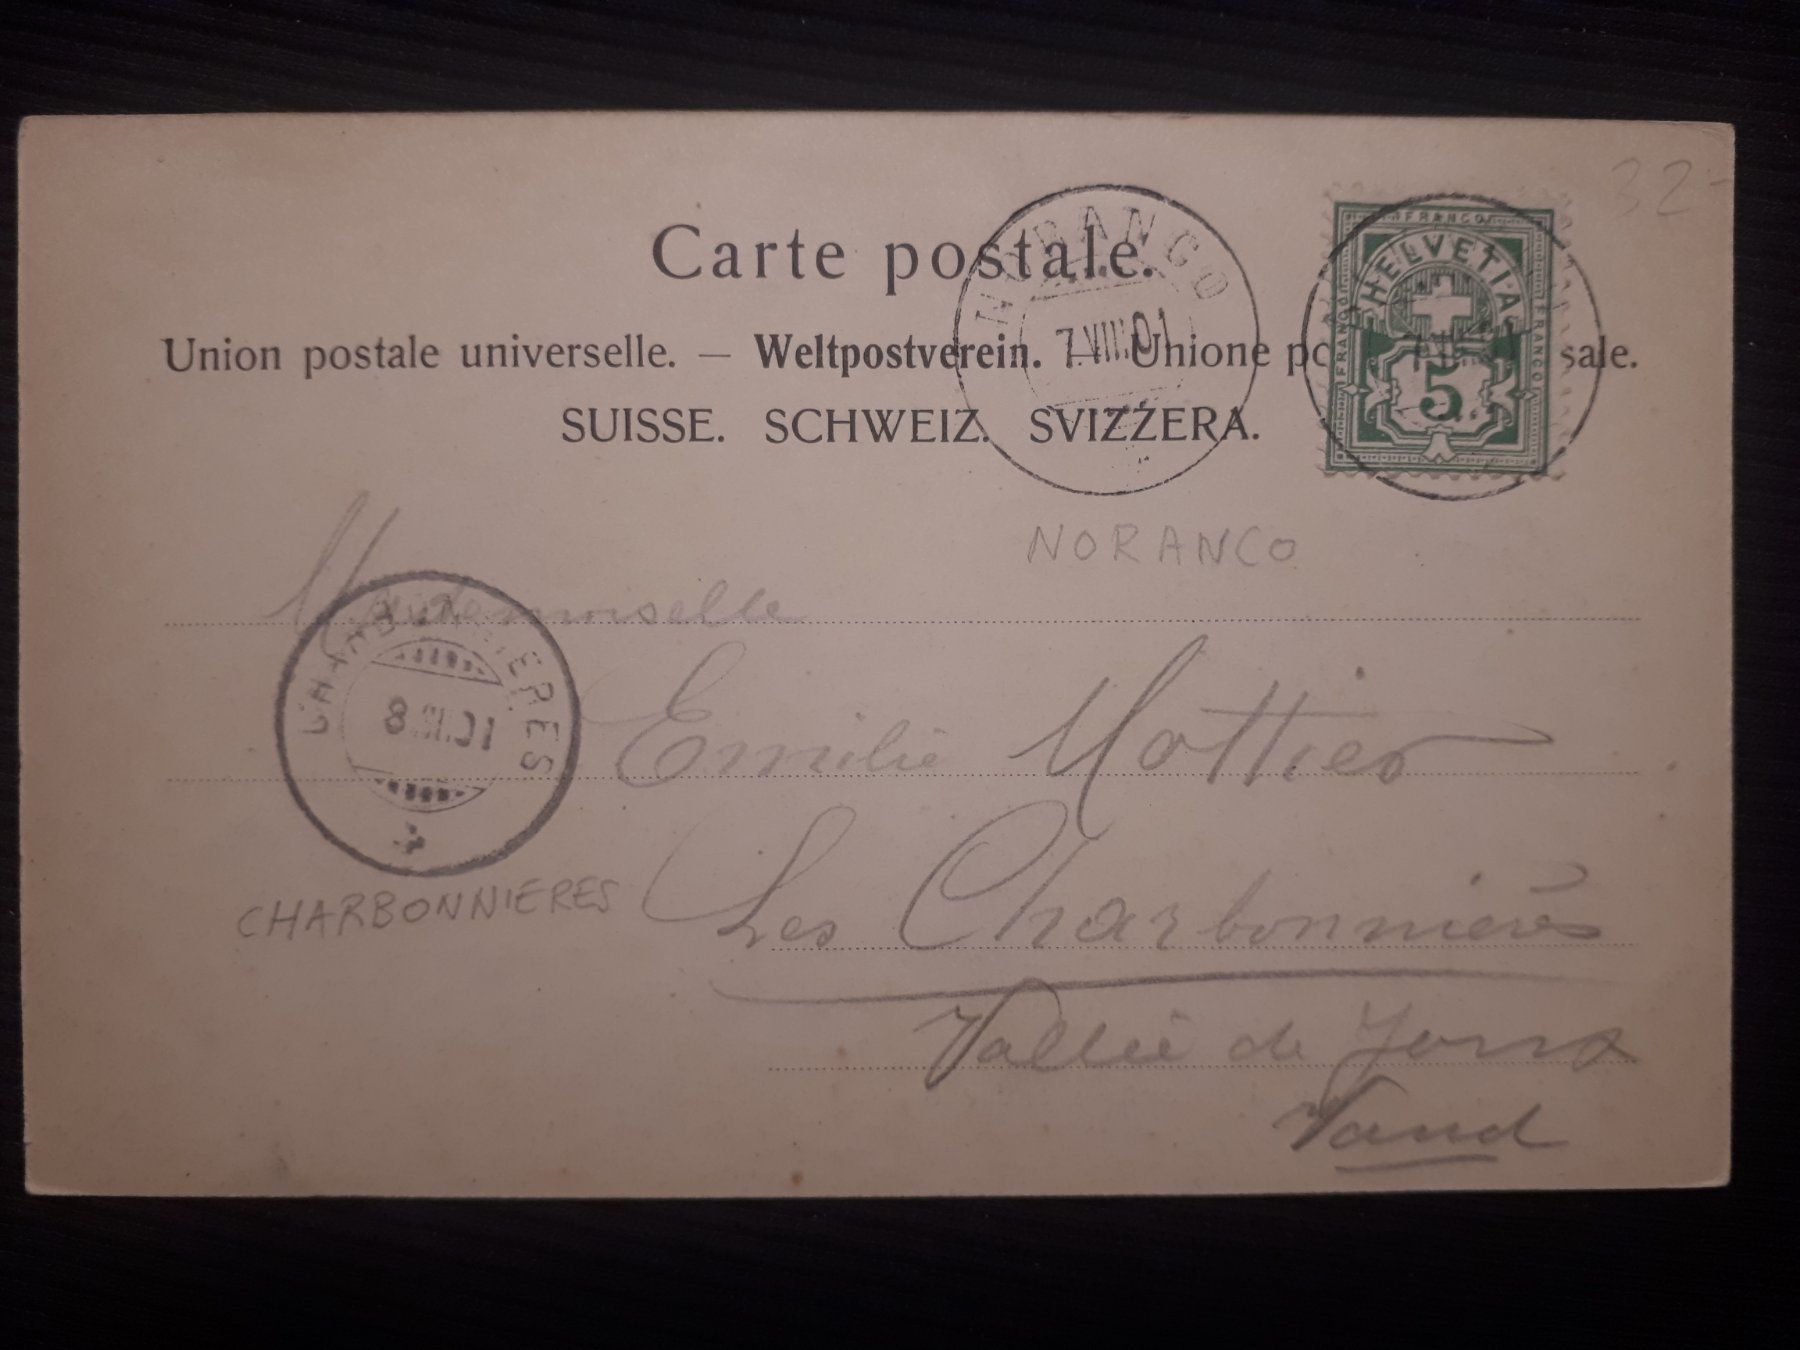 32-
Carte postale.
NORANCO
7.VIII.01
FRANCO
HELVETIA
FRANCO
FRANCO
5
Union postale universelle. — Weltpostverein. — Unione po sale.
SUISSE. SCHWEIZ. SVIZZERA.
NORANCO
Mademoiselle
CHARBONNIERES
8.VIII.01
Emilie Mottier
Les Charbonnières
CHARBONNIERES
Vallée de Joux
Vaud